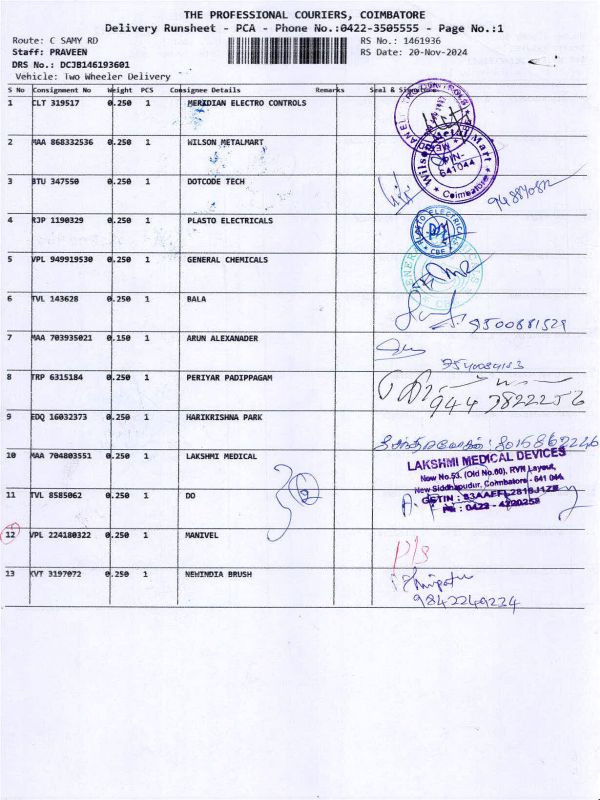 THE PROFESSIONAL COURIERS, COIMBATORE
Delivery Runsheet - PCA - Phone No.:0422-3505555 - Page No.:1
Route: C SAMY RD
RS No.: 1461936
Staff: PRAVEEN
RS Date: 20-Nov-2024
DRS No.: DCJB146193601
Vehicle: Two Wheeler Delivery
S No Consignment No Weight PCS Consignee Details Remarks Seal & Signature
1 CLT 319517 0.250 1 MERIDIAN ELECTRO CONTROLS
2 MAA 868332536 0.250 1 WILSON METALMART
Wilson Metal Mart
PIN-
641044
Coimbatore
3 BTU 347550 0.250 1 DOTCODE TECH
4 RJP 1190329 0.250 1 PLASTO ELECTRICALS
PLASTO ELECTRICALS
CBE
5 VPL 949919530 0.250 1 GENERAL CHEMICALS
GENERAL
6 TVL 143628 0.250 1 BALA
9500881529
7 MAA 703935021 0.150 1 ARUN ALEXANADER
8 TRP 6315184 0.250 1 PERIYAR PADIPPAGAM
944 3822256
9 EDQ 16032373 0.250 1 HARIKRISHNA PARK
10 MAA 704803551 0.250 1 LAKSHMI MEDICAL
LAKSHMI MEDICAL DEVICES
Now No.53, (Old No.60), RVN Layout,
New Siddhapudur, Coimbatore - 641 044
11 TVL 8585062 0.250 1 DO
GSTIN : 33AAFFL2818J1ZE
PH : 0422 - 4220252
12 VPL 224180322 0.250 1 MANIVEL
P/S
13 KVT 3197072 0.250 1 NEHINDIA BRUSH
9842249224